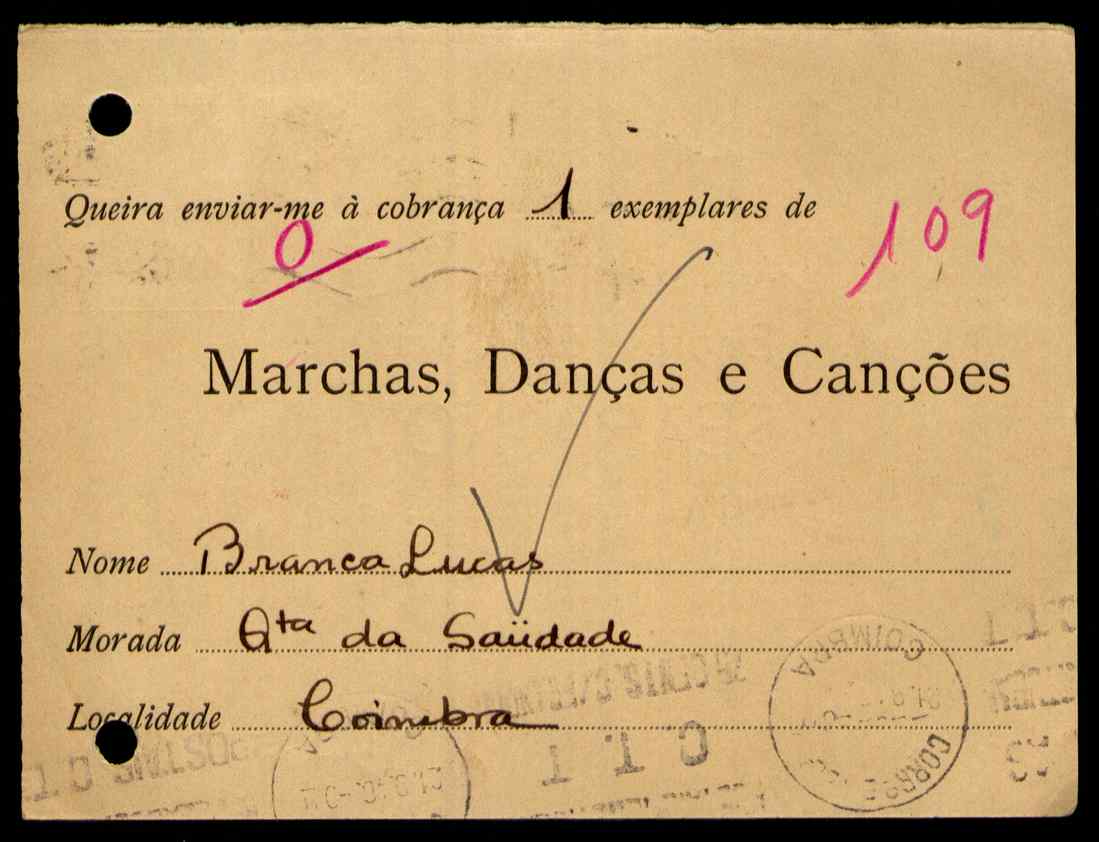 Queira enviar-me à cobrança 1 exemplares de
0
109
Marchas, Danças e Canções
Nome Branca Lucas
Morada Qta da Saüdade
Localidade Coimbra
COIMBRA
CORRE
C T T